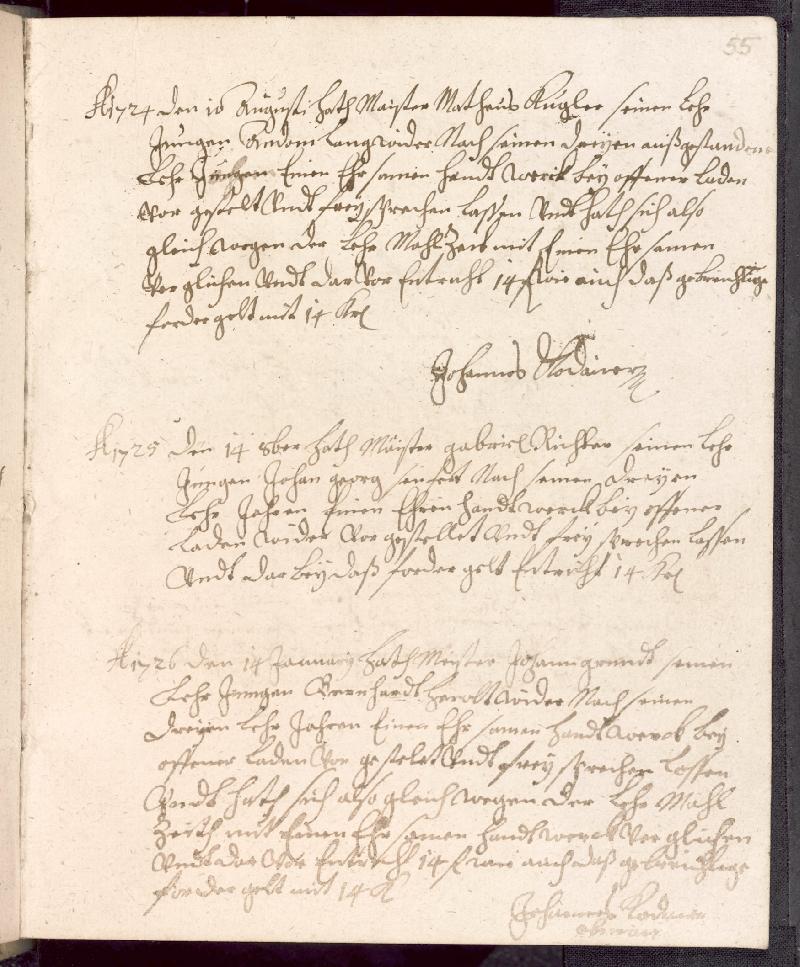 55
A 1724 den 10 Augusti hath Maister Matheus Kugler seinen lehr
Jungen Andoni langwider Nach seinen dreyen außgestanden
Lehr Jahren Einen Ehrsamen handtwerck bey offener laden
Vor gestelt Undt freysprechen lassen Undt hath sich also
gleich wegen der lehr Mahlzeit mit Einen Ehrsamen
Verglichen Undt dar Vor Entricht 14 f wie auch daß gebreichige
forder gelt mit 14 Kr
Johannes Kodauer
A 1725 den 14 8ber hath Maister gabriel Richter seinen lehr
Jungen Johan georg seufert Nach seinen dreyen
Lehr Jahren Einen Ehren handtwerck bey offener
Laden wider Vor gestellet Undt frey sprechen lassen
Undt dar bey daß forder gelt Entricht 14 Kr
A 1726 den 14 January hath Meister Johann grundt seinen
Lehr Jungen Bernhardt herolt wider Nach seinen
dreyen lehr Jahren Einen Ehrsamen handtwerck bey
offener laden Vor gestelet Undt frey sprechen lassen
Undt hath sich also gleich wegen der lehr Mahl
Zeith mit Einen Ehrsamen handtwerck Verglichen
Undt dar Vor Entricht 14 f wie auch daß gebreichige
forder gelt mit 14 K
Johannes Kodauer